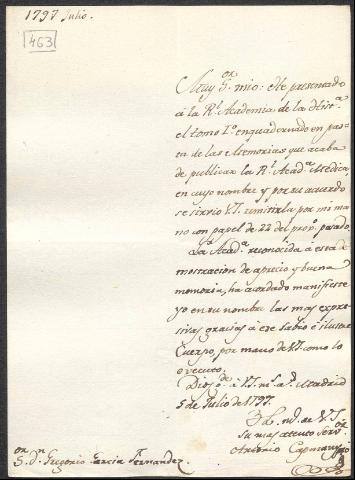 1797 Julio.
463
Muy S.or mio: He presentado
à la R.l Academia de la Hist.a
el tomo I.o enquadernado en pas-
ta de las Memorias que acaba
de publicar la R.l Acad.a Medica,
en cuyo nombre y por su acuerdo
se sirvio V.S. remitirla por mi ma
no con papel de 22 del prop.o pasado.
La Acad.a reconocida à esta de
mostracion de aprecio y buena
memoria, ha acordado manifieste
yo en su nombre las mas expre
sivas gracias à ese sabio è ilustre
Cuerpo, por mano de V.S. como lo
executo.
Dios g.de à V.S. m.s a.s Madrid
5 de Julio de 1797.
B. L. M. de V.S.
su mas atento Serv.or
Antonio Capmany
S.or D.n Gregorio Garcia Fernandez.